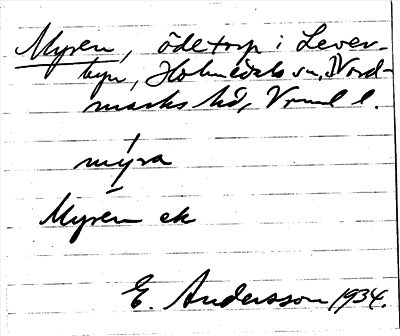 Myren, ödetorp i Lever-
byn, Holmedals sn, Nord-
marks hd, Vrml l.
mýra
Myren ek
E. Andersson 1934.